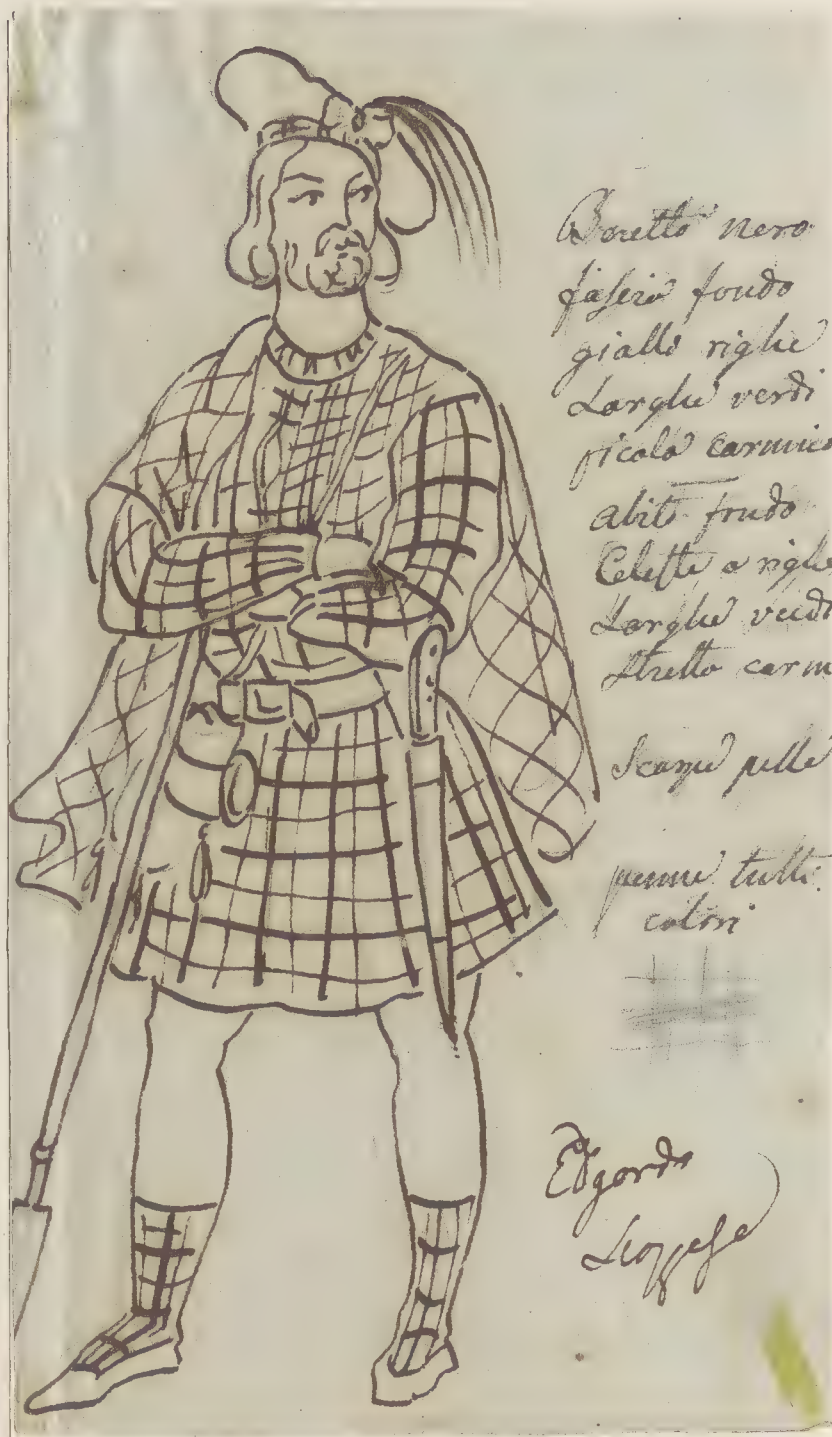 Boretto nero
fascia fondo
giallo righe
Larghe verdi
picolo
abito fondo
Celeste a righe
Larghe verdi
stretto
Scarpe pelle
penne tutti
colori
Edgardo
Scozzese